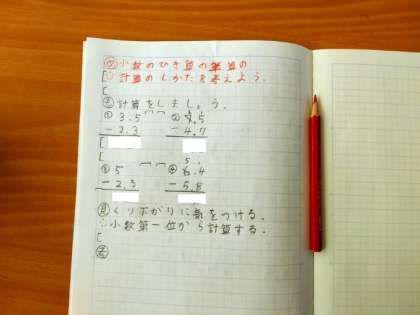 め 小数のひき算の筆算の
計算のしかたを考えよう。
計算をしましょう。
① 3.5 ② 5.5
- 2.3 - 4.7
③ 5 ④ 6.4
- 2.3 - 5.8
くり下がりに気をつける。
∴小数第一位から計算する。